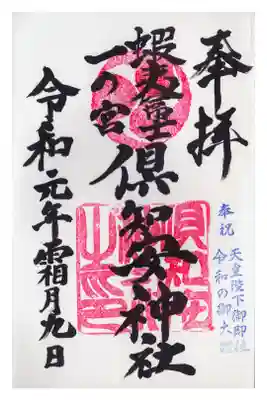 奉拝
蝦夷富士
一ノ宮
倶知安神社
令和元年霜月九日
奉祝
天皇陛下御即位
令和の御大